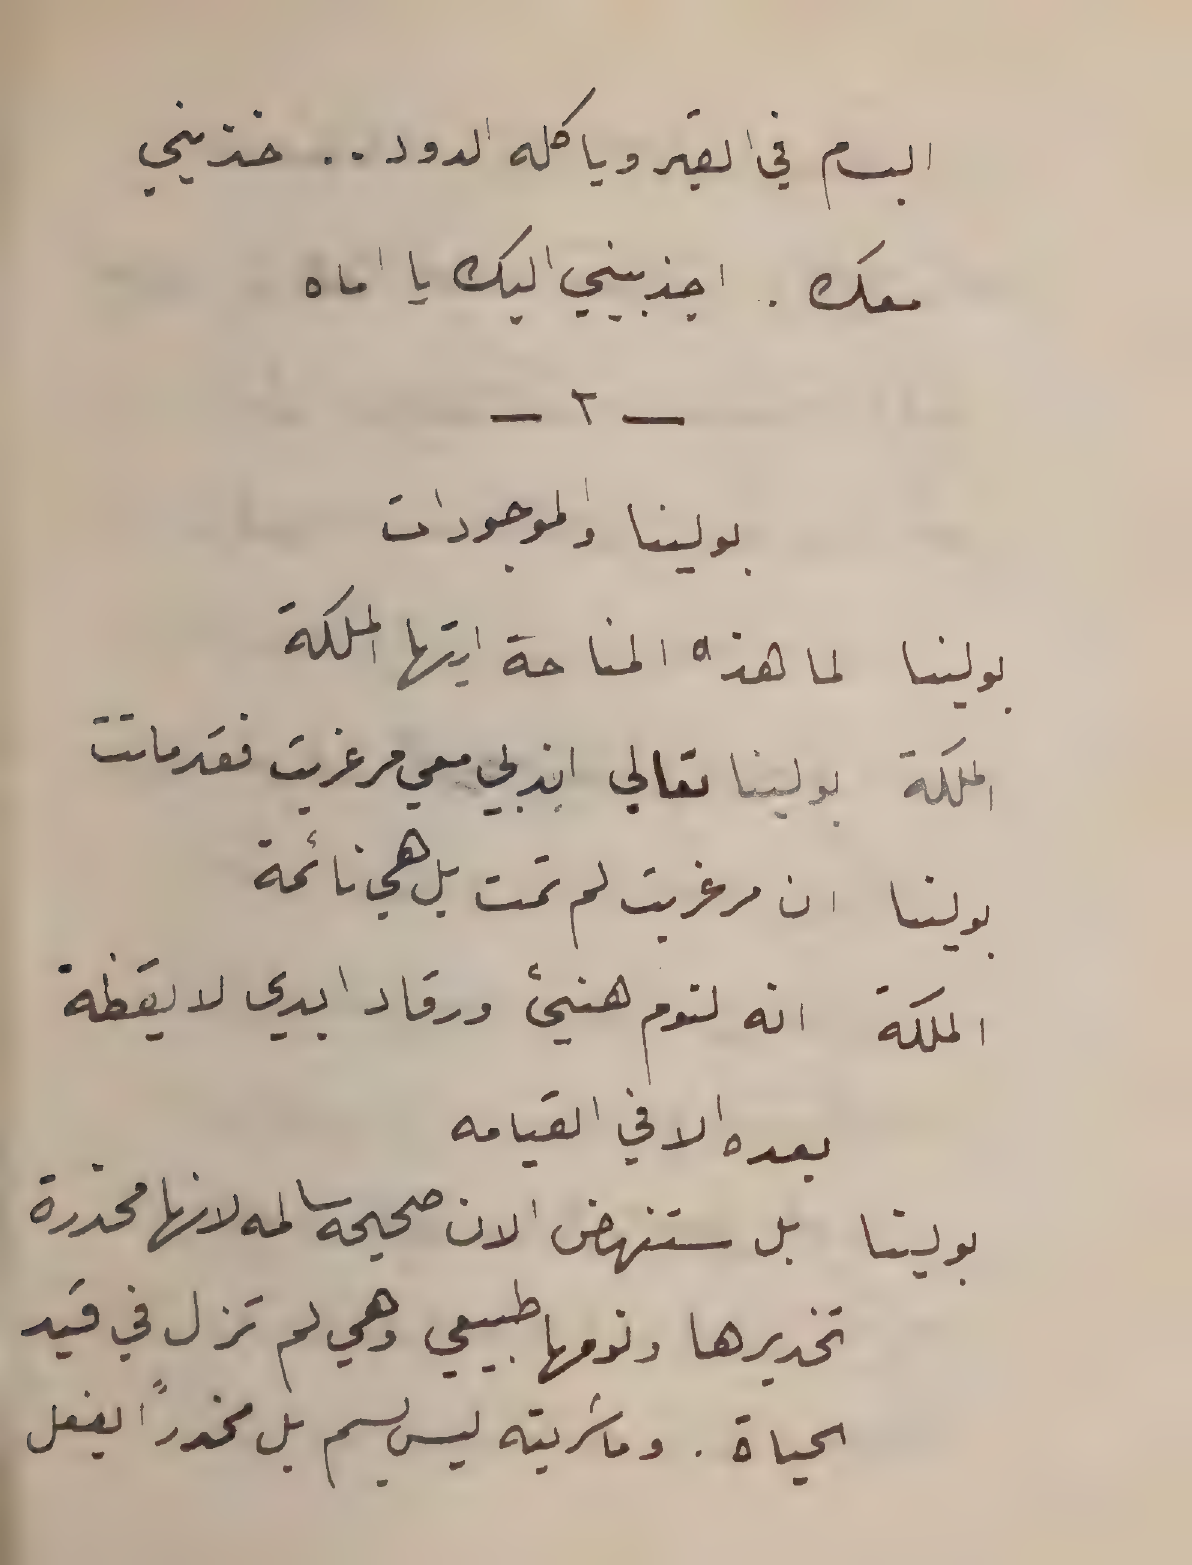 البسام في القبر وياكله الدود .. خذيني
معك . اجذبيني اليك يا اماه
— ٢ —
بولينا والموجودات
بولينا لما هذه المناحة ايتها الملكة
الملكة بولينا تعالي اندبي معي مرغريت فقد ماتت
بولينا ان مرغريت لم تمت بل هي نائمة
الملكة انه لنوم هنيئ ورقاد ابدي لا يقظة
بعده الا في القيامه
بولينا بل ستنهض الان صحيحه سالمه لانها مخدرة
تخديرها ونومها طبيعي وهي لم تزل في قيد
الحياة . وما شربته ليس بسم بل مخدراً يفعل